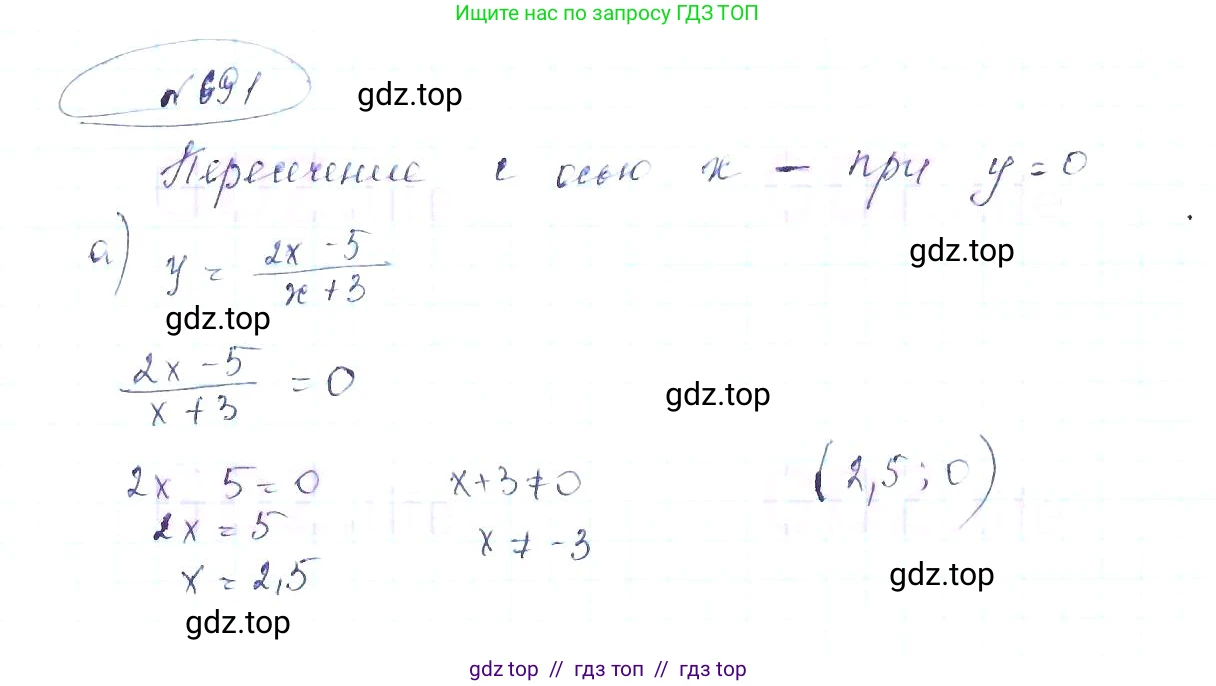 Ищите нас по запросу ГДЗ ТОП
№ 691
gdz.top
Пересечение с осью x – при y = 0
gdz.top
а) y = (2x - 5)/(x + 3)
gdz.top
(2x - 5)/(x + 3) = 0
gdz.top
2x 5 = 0 x + 3 ≠ 0 (2,5; 0)
2x = 5 x ≠ -3
x = 2,5
gdz.top
gdz.top
gdz top // гдз топ // гдз top